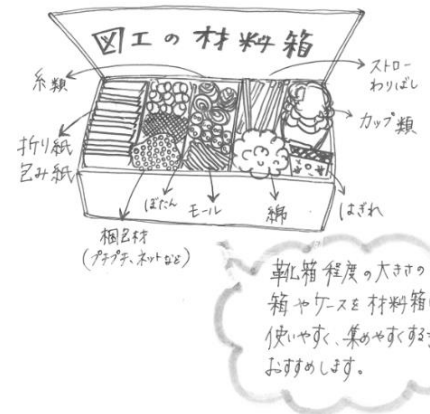 図工の材料箱
糸類
ストロー
わりばし
カップ類
折り紙
包み紙
ぼたん
モール
綿
はぎれ
梱包材
(プチプチ、ネットなど)
靴箱程度の大きさの
箱やケースを材料箱に
使いやすく、集めやすくする
おすすめします。